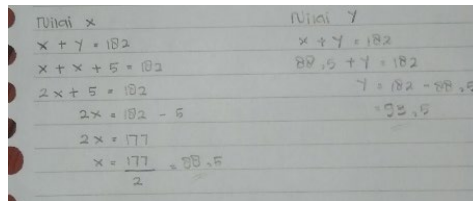 Nilai x
x + y = 182
x + x + 5 = 182
2x + 5 = 182
2x = 182 - 5
2x = 177
x = 177/2 = 88,5
Nilai y
x + y = 182
88,5 + y = 182
y = 182 - 88,5
= 93,5